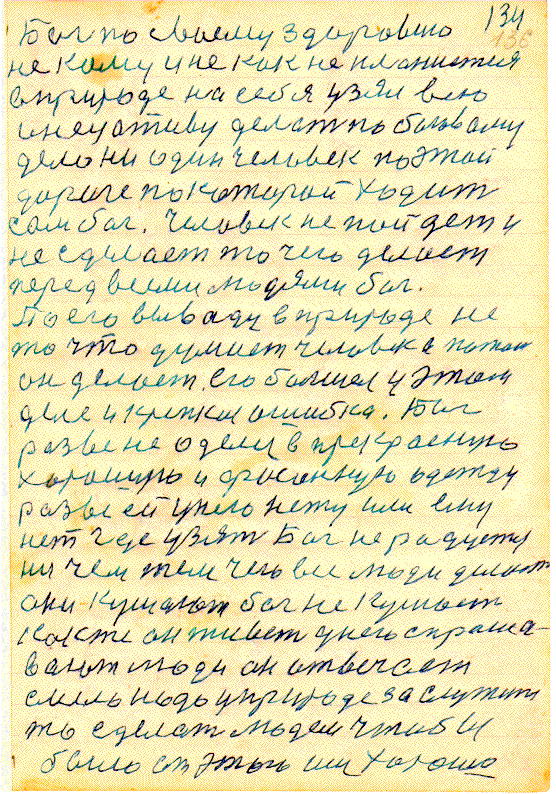 134
136
Бог по своему здоровию
не кому и не как не клонится
в природе на себя узял всю
инецативу делат по боговому
дело ни один человек по этой
дороге по которой ходит
сам бог. Человек не пойдет и
не сделает то чего делает
перед всеми людями бог.
По его вываду в природе не
то что думает человек а потом
он делает его болшая у этом
деле и крепкая ошибка. Бог
разве не одел в прекрасную
хорошую и фасонную одежду
разве ей у него нету или ему
нет где узят Бог не радуется
ни чем тем чего все люди делают
они кушают бог не кушает
как же он живет у него спраша-
вают люди он отвечает
смело надо у природе заслужит
то сделат людям чтобы
было от этого им хорошо